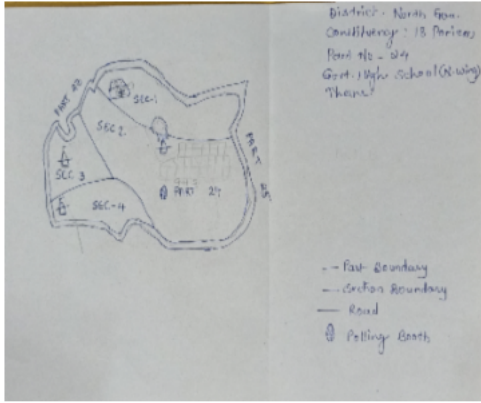 District - North Goa.
Constituency : 13 Poriem
Part No - 24
Govt. High School (N-wing)
Thane
SEC-1
SEC 2
PART
PART 25
SEC 3
SEC-4
PART 24
-- Part Boundary
Section Boundary
Road
Polling Booth